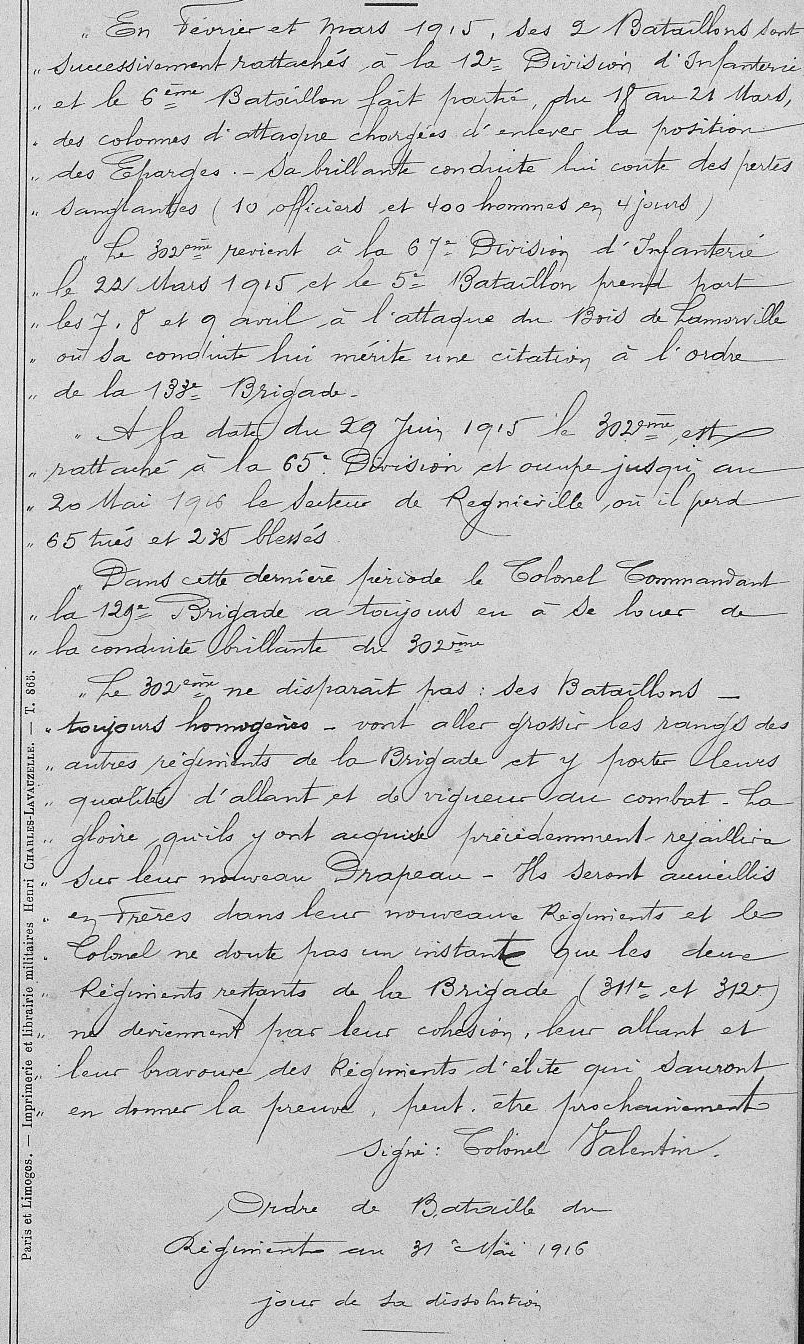 " En Février et Mars 1915, ses 2 Bataillons sont
" successivement rattachés à la 12e Division d'Infanterie
" et le 6ème Bataillon fait partie, du 18 au 21 Mars,
" des colonnes d'attaque chargées d'enlever la position
" des Eparges. - Sa brillante conduite lui coute des pertes
" sanglantes (10 officiers et 400 hommes en 4 jours)
" Le 302ème revient à la 67e Division d'Infanterie
" le 22 Mars 1915 et le 5e Bataillon prend part
" les 7, 8 et 9 avril à l'attaque du Bois de Lamorville
" où sa conduite lui mérite une citation à l'ordre
" de la 133e Brigade.
" A la date du 29 Juin 1915 le 302ème est
" rattaché à la 65e Division et occupe jusqu'au
" 20 Mai 1916 le Secteur de Regniéville, où il perd
" 65 tués et 235 blessés.
" Dans cette dernière période le Colonel Commandant
" la 129e Brigade a toujours eu à se louer de
" la conduite brillante du 302ème
" Le 302ème ne disparaît pas : ses Bataillons -
" toujours homogènes - vont aller grossir les rangs des
" autres régiments de la Brigade et y porter leurs
" qualités d'allant et de vigueur au combat - La
" gloire qu'ils y ont acquise précédemment rejaillira
" sur leur nouveau Drapeau - Ils seront accueillis
" en Frères dans leur nouveaux Régiments et le
" Colonel ne doute pas un instant que les deux
" Régiments restants de la Brigade (311e et 312e)
" ne deviennent par leur cohésion, leur allant et
" leur bravoure des Régiments d'élite qui sauront
" en donner la preuve, peut-être prochainement
Signé : Colonel Valentin.
Ordre de Bataille du
Régiment au 31 Mai 1916
jour de sa dissolution
Paris et Limoges. — Imprimerie et librairie militaires Henri CHARLES-LAVAUZELLE. — T. 865.